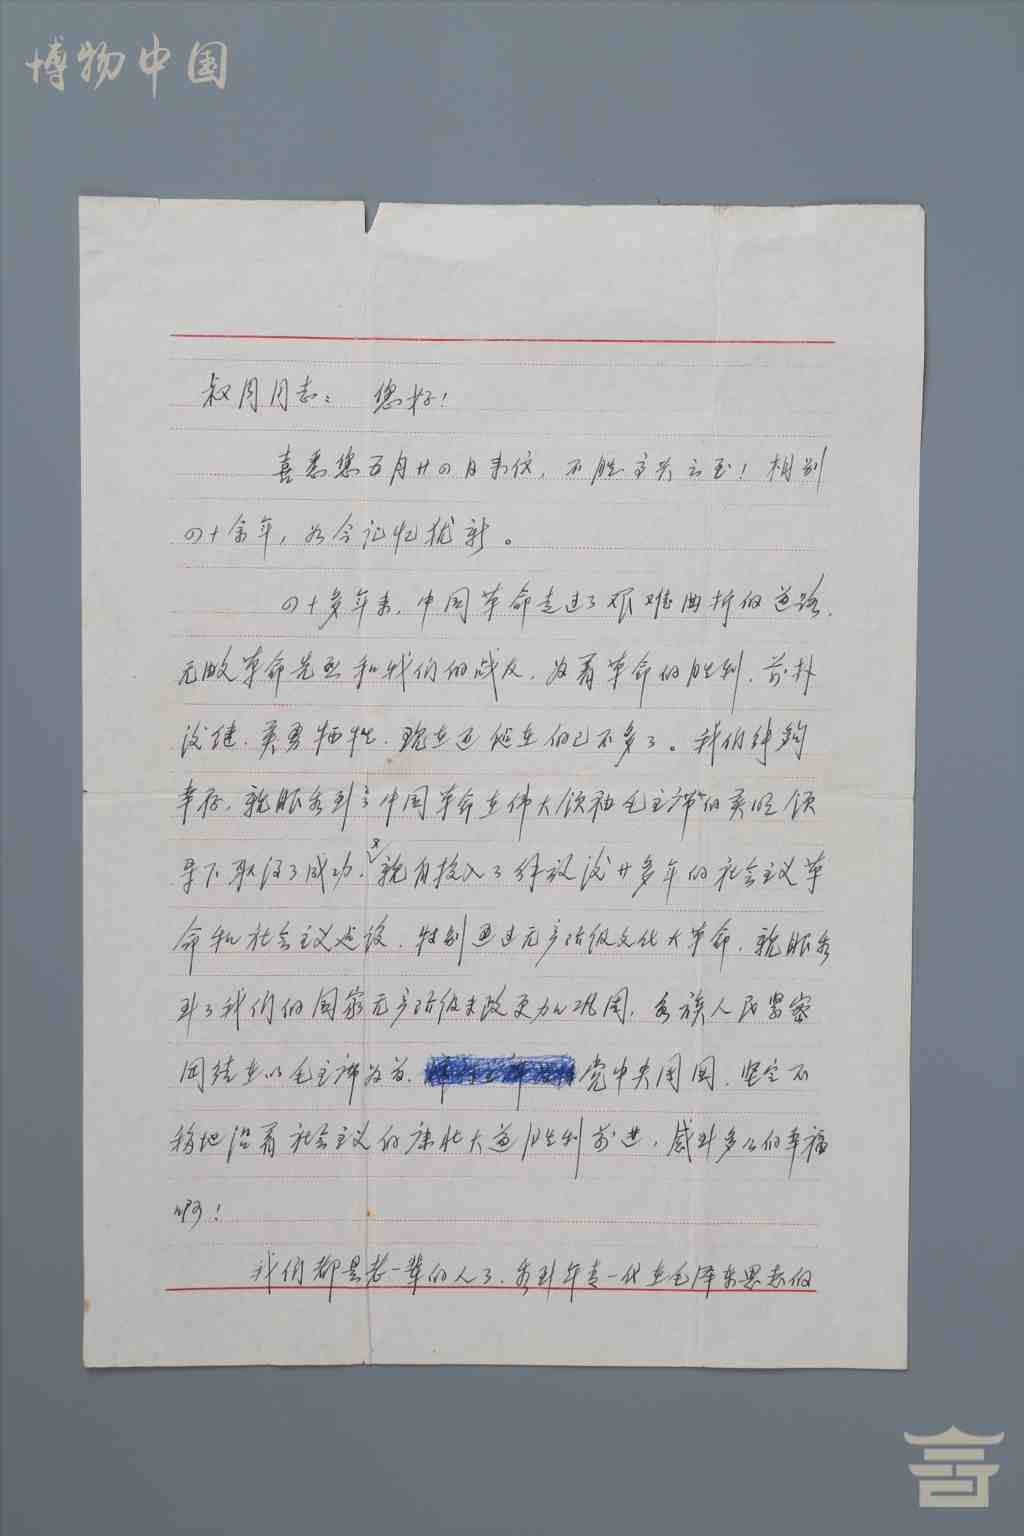 博物中国
叔同同志：您好！
喜悉您五月廿四日来信，不胜之至！相别
四十余年，如今记忆犹新。
四十多年来，中国革命走过了艰难曲折的道路，
无数革命先烈和我们的战友，为着革命的胜利，前扑
后继，英勇牺牲，现在还健在的已不多了。我们
幸存，亲眼看到了中国革命在伟大领袖毛主席的英明领
导下取得了成功，又亲自投入了解放后廿多年的社会主义革
命和社会主义建设，特别通过无产阶级文化大革命，亲眼看
到了我们的国家无产阶级专政更加巩固，各族人民紧密
团结在以毛主席为首，党中央周围，坚定不
移地沿着社会主义的康壮大道胜利前进，感到多么的幸福
啊！
我们都是老一辈的人了，看到年青一代在毛泽东思想的